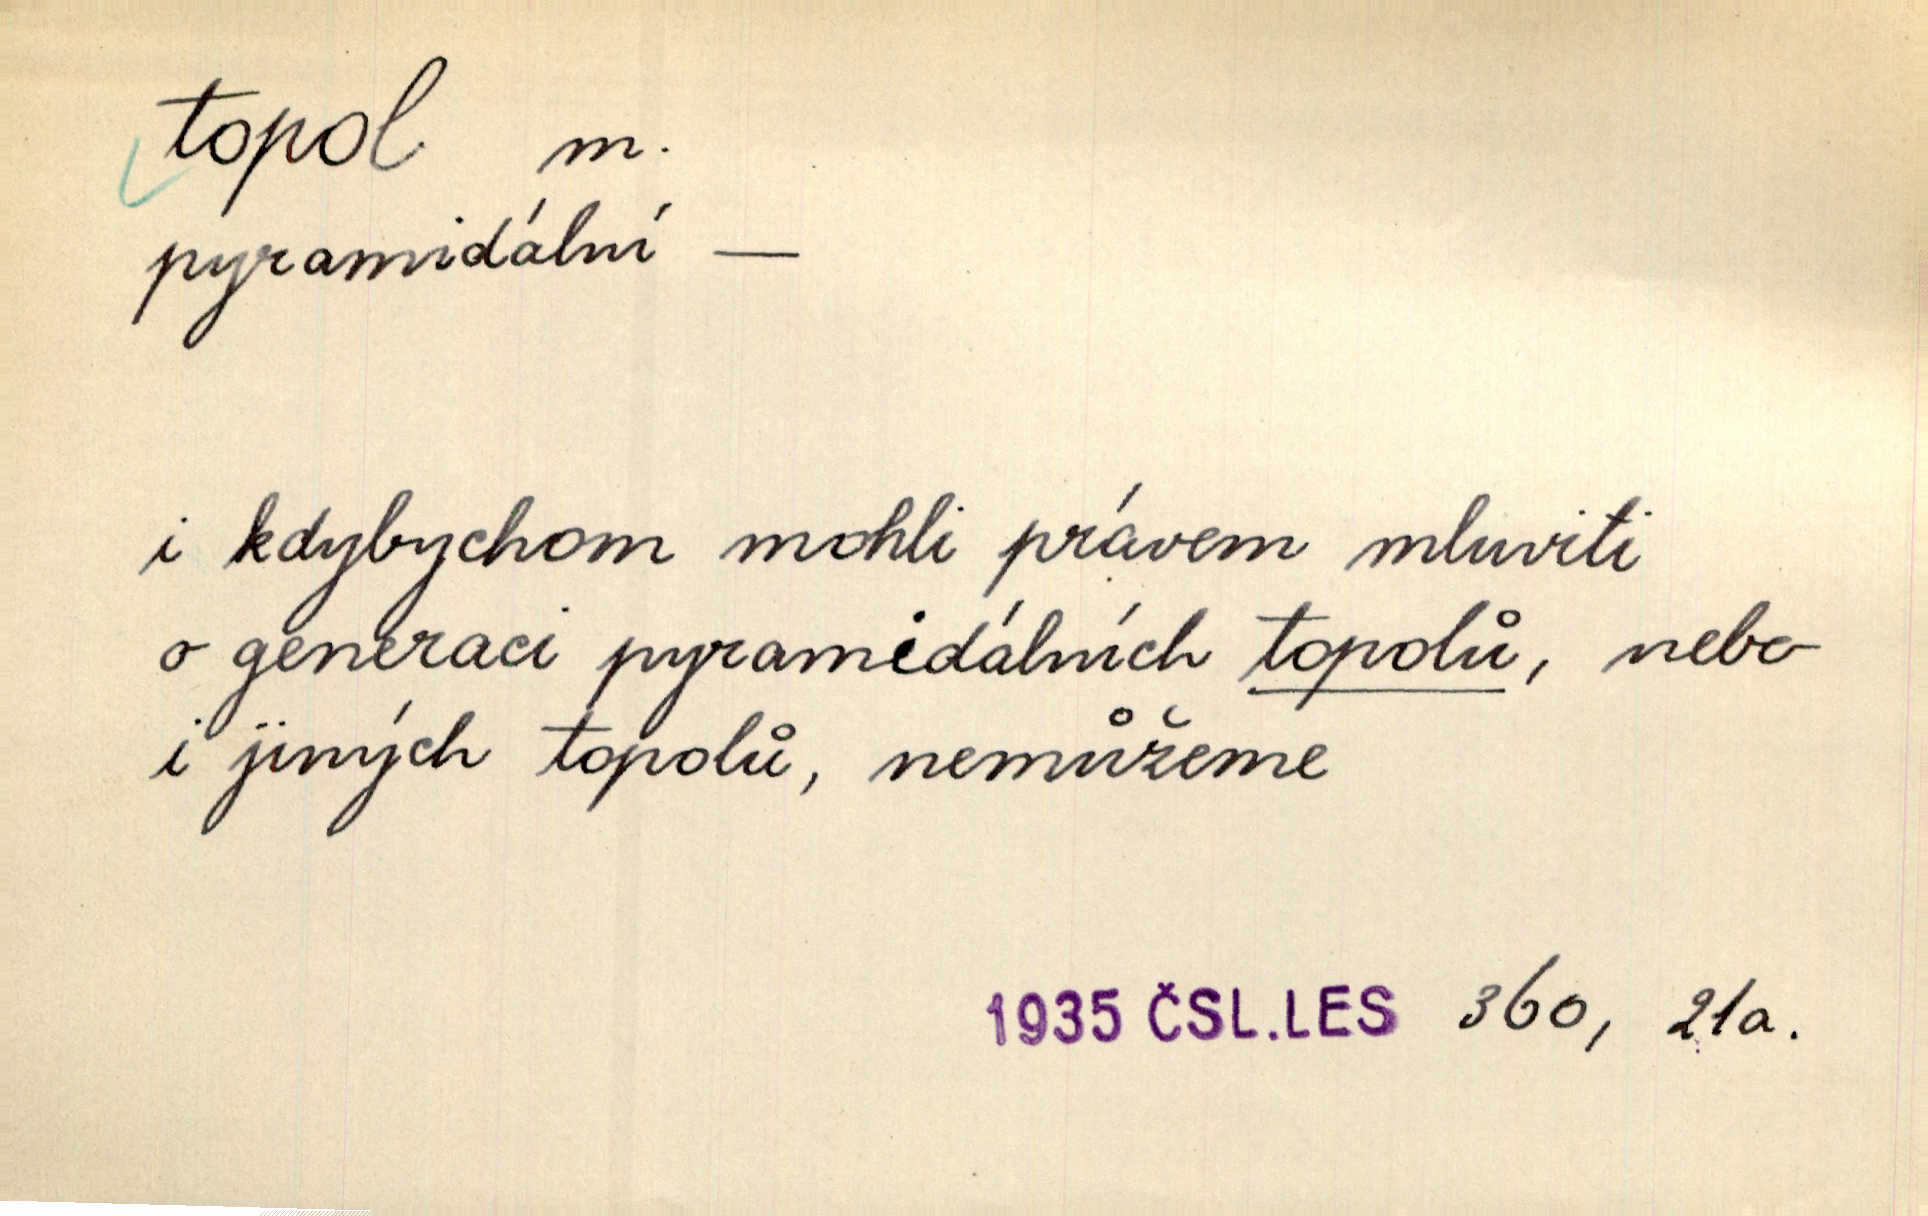 topol m.
pyramidální —
i kdybychom mohli právem mluviti
o generaci pyramidálních topolů, nebo
i jiných topolů, nemůžeme
1935 ČSL.LES 360, 21a.